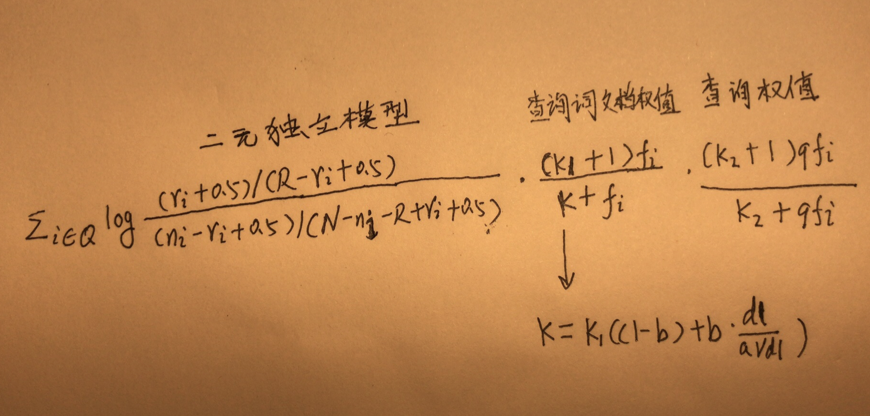 二元独立模型 查询词文档权值 查询权值
∑i∈Q log (ri+0.5)/(R-ri+0.5) / (ni-ri+0.5)/(N-ni-R+ri+0.5) · (k1+1)fi / K+fi · (k2+1)qfi / k2+qfi
↓
K=k1((1-b)+b·dl/avdl)